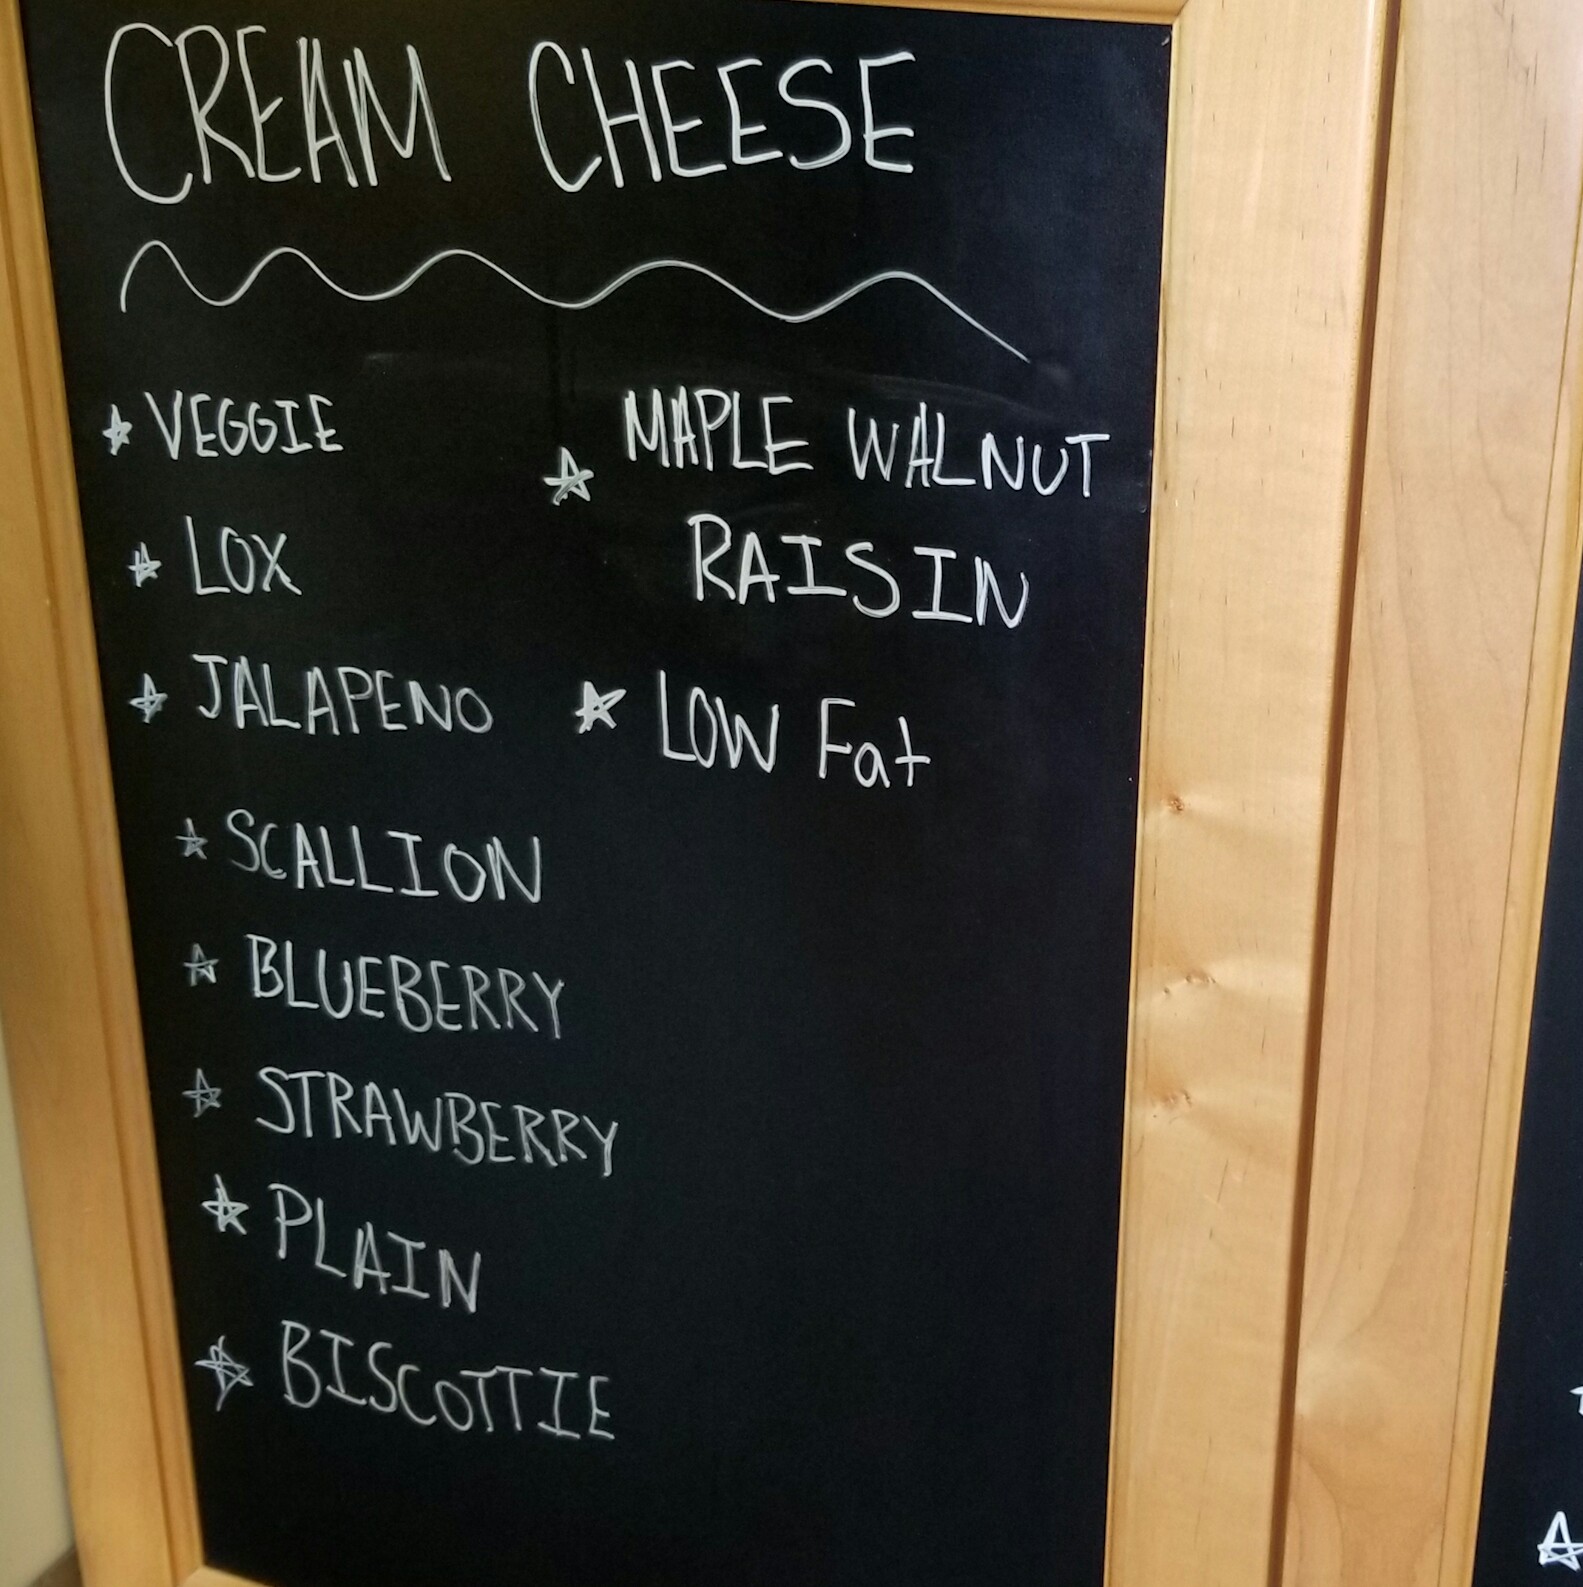 CREAM CHEESE
VEGGIE
LOX
JALAPENO
SCALLION
BLUEBERRY
STRAWBERRY
PLAIN
BISCOTTIE
MAPLE WALNUT
RAISIN
LOW Fat